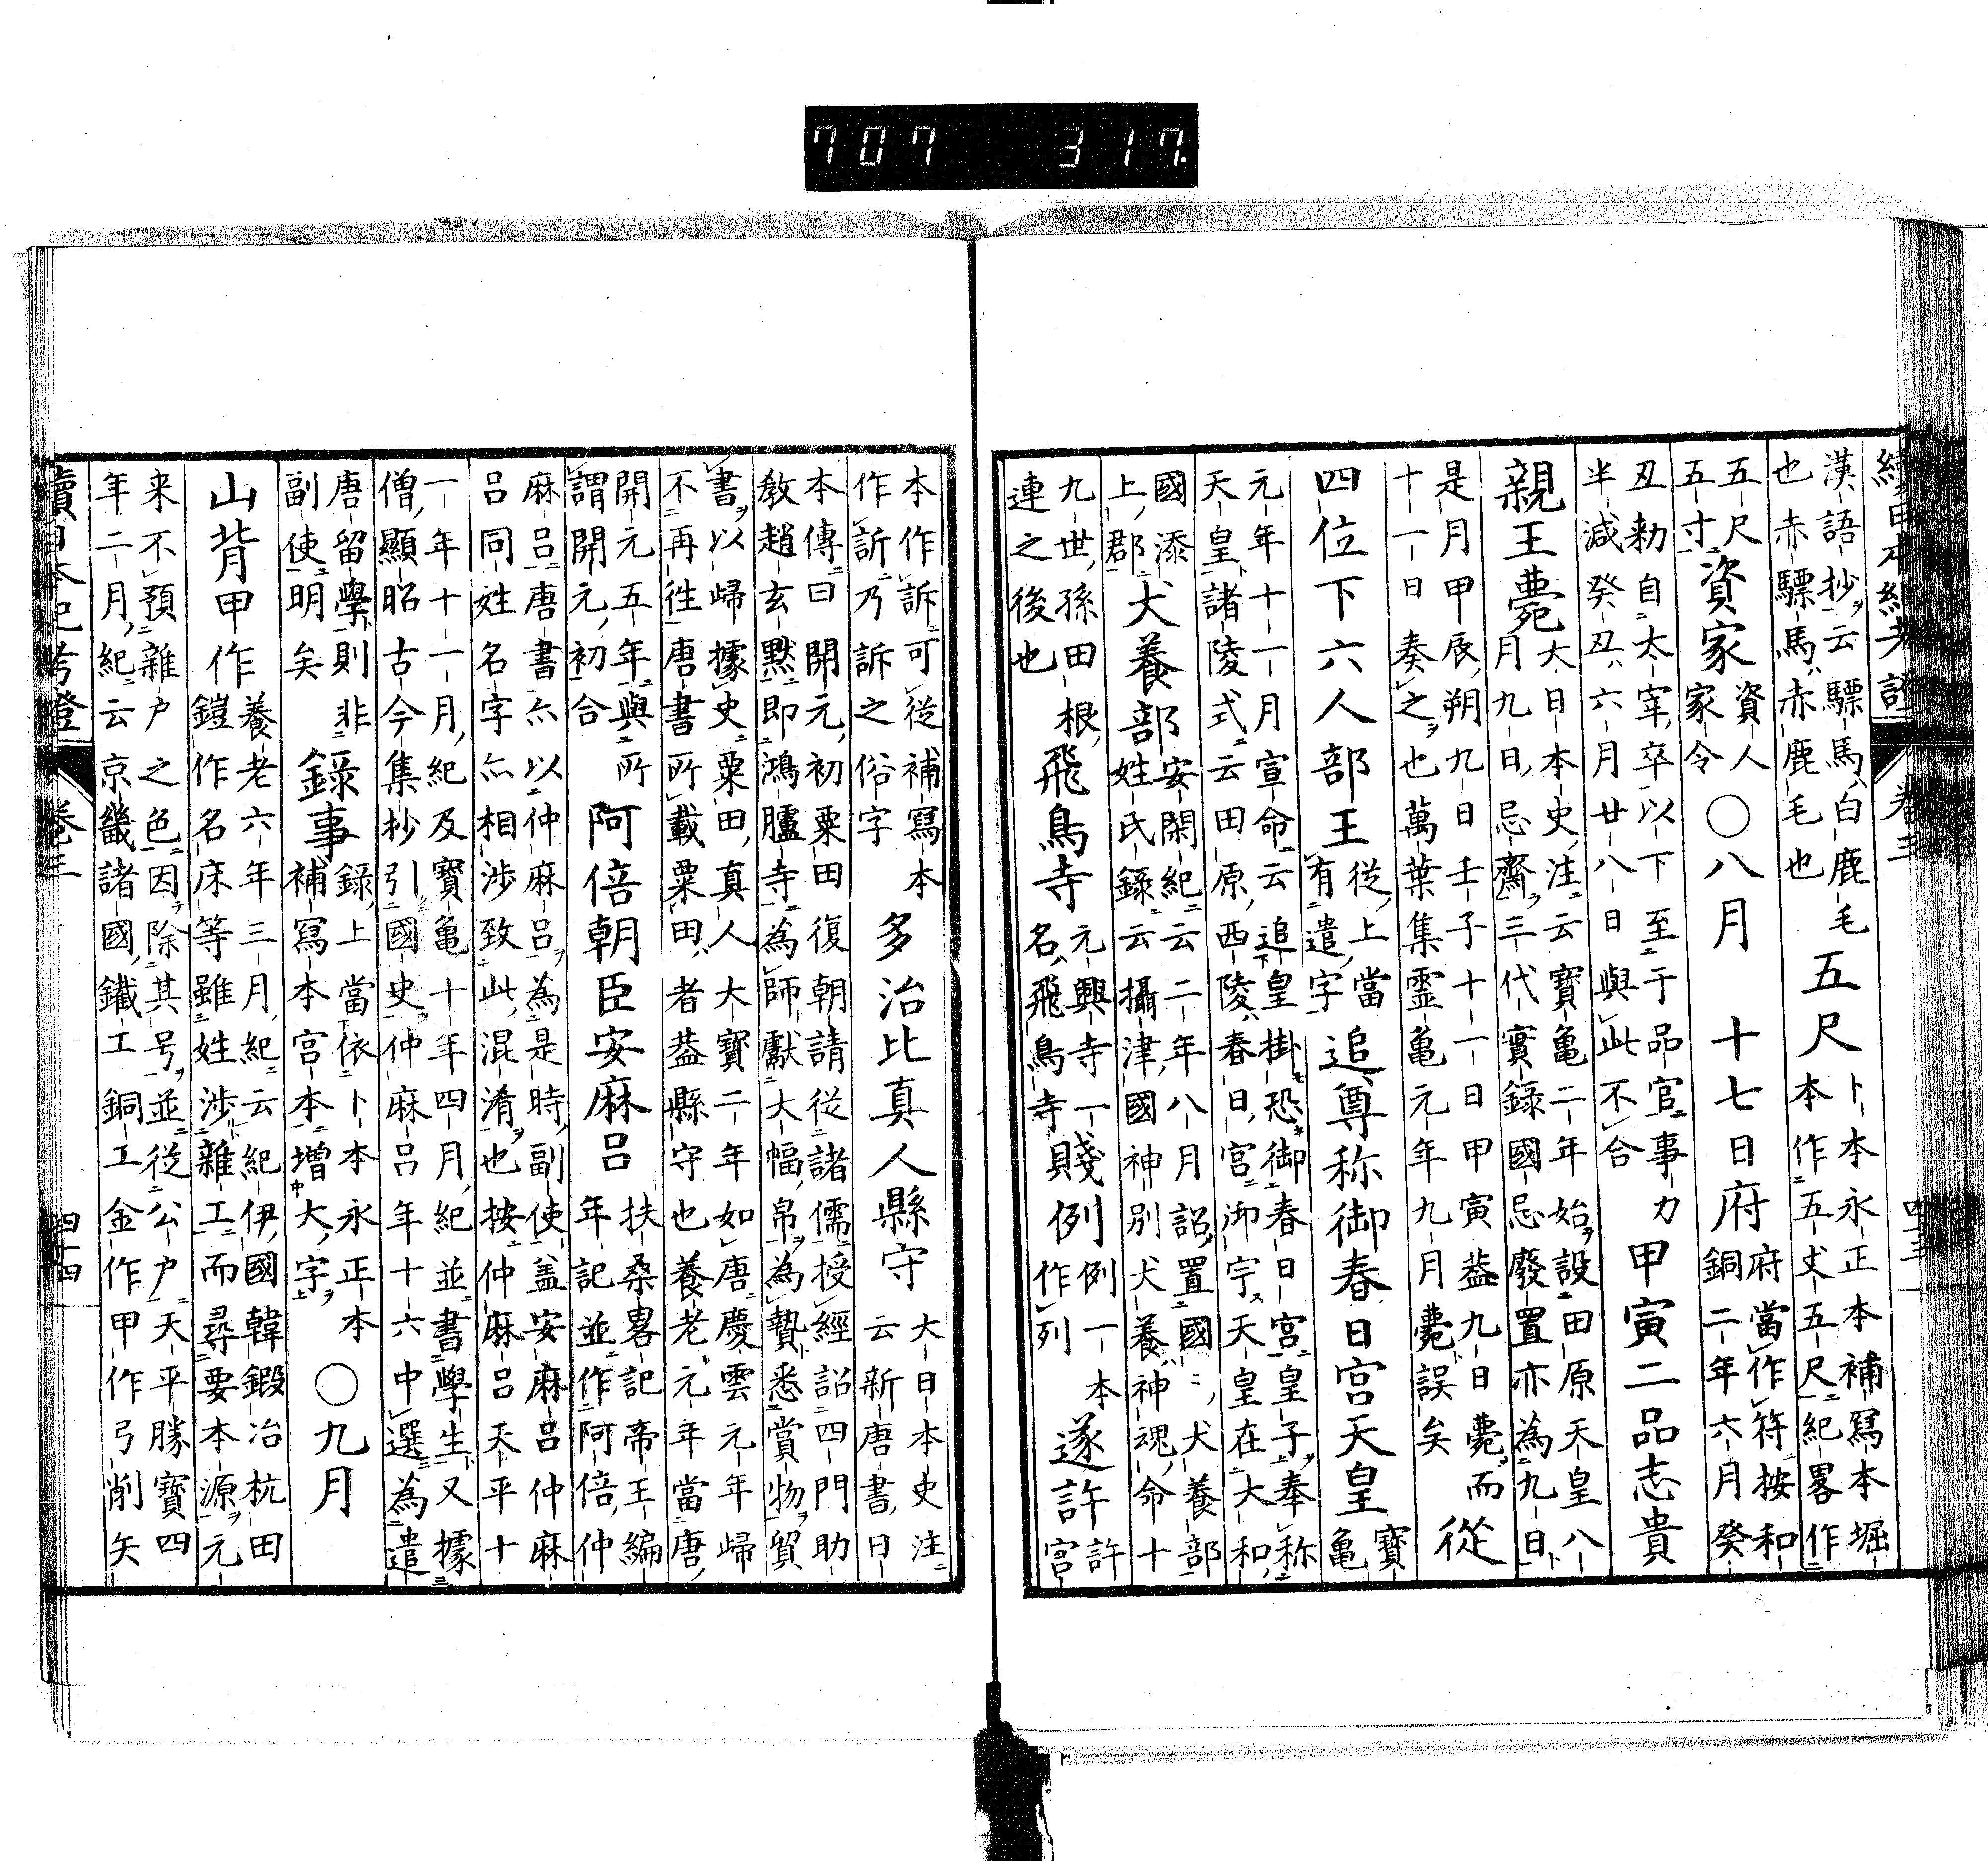 707 317
續日本紀考證 卷三 四十三
漢語抄云驃馬白鹿毛
也赤驃馬赤鹿毛也
五尺
卜本永正本補寫本堀
本作五丈五尺紀畧作
五尺
五寸
資家
資人
家令
○八月
十七日府
府當作符按和
銅二年六月癸
丑勅自太宰卒以下至于品官事力
半減癸丑六月廿八日與此不合
甲寅二品志貴
親王薨
大日本史注云寶亀二年始設田原天皇八
月九日忌齋三代實錄國忌廢置亦為九日
是月甲辰朔九日壬子十一日甲寅葢九日薨而
十一日奏之也萬葉集霊亀元年九月薨誤矣
從
四位下六人部王
從上當
有遣字
追尊称御春日宮天皇
寶
亀
元年十一月宣命云追皇掛恐御春日宮皇子奉称
天皇諸陵式云田原西陵春日宮御宇天皇在大和
國添
上郡
犬養部
安閑紀云二年八月詔置國〻犬養部
姓氏錄云攝津國神別犬養神魂命十
九世孫田根
連之後也
飛鳥寺
元興寺一
名飛鳥寺
賤例
例一本
作列
遂許
許
宮
本作訴可從補寫本
作訢乃訴之俗字
多治比真人縣守
大日本史注
云新唐書日
本傳曰開元初粟田復朝請從諸儒授經詔四門助
敎趙玄默即鴻臚寺為師獻大幅帛為贄悉賞物貿
書以歸據史粟田真人大寶二年如唐慶雲元年歸
不再徃唐書所載粟田者葢縣守也養老元年當唐
開元五年與所
謂開元初合
阿倍朝臣安麻呂
扶桑畧記帝王編
年記並作阿倍仲
麻呂唐書亦以仲麻呂為是時副使盖安麻呂仲麻
呂同姓名字亦相渉致此混淆也按仲麻呂天平十
一年十一月紀及寶亀十年四月紀並書學生又據
僧顯昭古今集抄引國史仲麻呂年十六中選為遣
唐留學則非
副使明矣
錄事
錄上當依卜本永正本
補寫本宮本増大字
○九月
山背甲作
養老六年三月紀云紀伊國韓鍛冶杭田
鎧作名床等雖姓渉雜工而尋要本源元
来不預雜户之色因除其号並從公户天平勝寶四
年二月紀云京畿諸國鐵工銅工金作甲作弓削矢
續日本紀考證 卷三 四十四